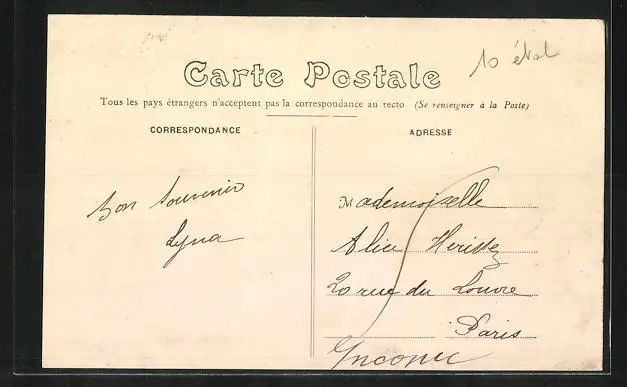 10 étol
Carte Postale
Tous les pays étrangers n'acceptent pas la correspondance au recto (Se renseigner à la Poste)
CORRESPONDANCE
ADRESSE
Bon Souvenir
Lyna
Mademoiselle
Alice Herissez
20 rue du Louvre
Paris
Inconnu